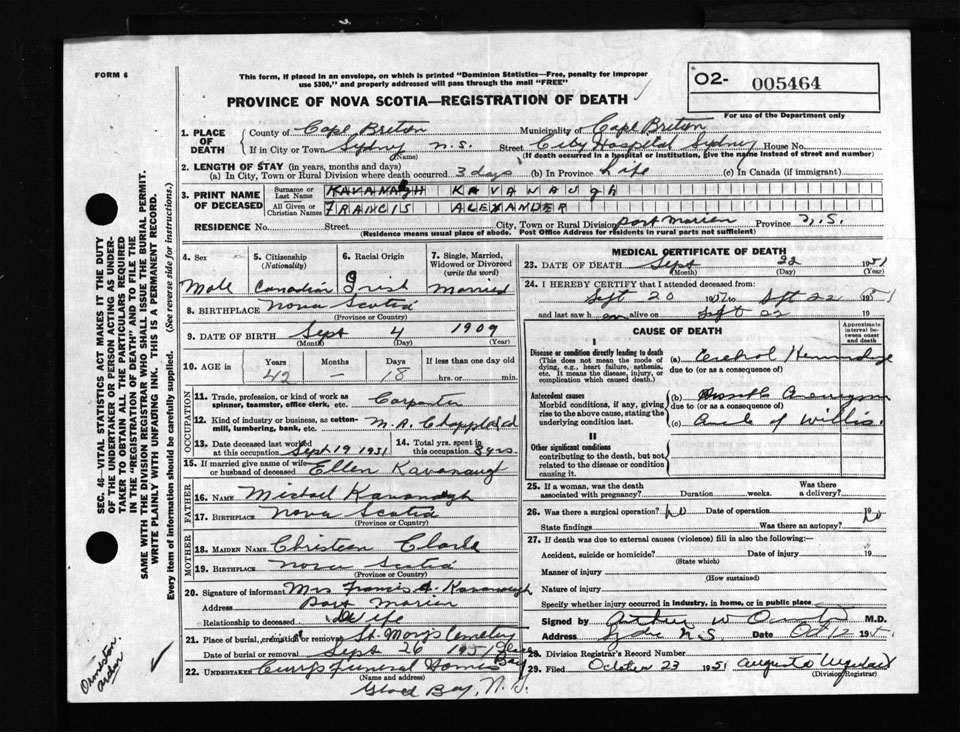 FORM 6
This form, if placed in an envelope, on which is printed "Dominion Statistics—Free, penalty for improper
use $300," and properly addressed will pass through the mail "FREE"
O2- 005464
PROVINCE OF NOVA SCOTIA—REGISTRATION OF DEATH
For use of the Department only
1. PLACE OF DEATH
County of Cape Breton Municipality of Cape Breton
If in City or Town Sydney N.S. Street City Hospital Sydney House No.
(Name) (If death occurred in a hospital or institution, give the name instead of street and number)
2. LENGTH OF STAY (in years, months and days)
(a) In City, Town or Rural Division where death occurred 3 days (b) In Province Life (c) In Canada (if immigrant)
3. PRINT NAME OF DECEASED
Surname or Last Name KAVANAUGH
All Given or Christian Names FRANCIS ALEXANDER
RESIDENCE No. Street City, Town or Rural Division Port Morien Province N.S.
(Residence means usual place of abode. Post Office Address for residents in rural parts not sufficient)
4. Sex Male
5. Citizenship (Nationality) Canadian
6. Racial Origin Irish
7. Single, Married, Widowed or Divorced (write the word) Married
8. BIRTHPLACE Nova Scotia
(Province or Country)
9. DATE OF BIRTH Sept 4 1909
(Month) (Day) (Year)
10. AGE in Years Months Days If less than one day old
42 — 18 hrs. or min.
OCCUPATION
11. Trade, profession, or kind of work as spinner, teamster, office clerk, etc. Carpenter
12. Kind of industry or business, as cotton-mill, lumbering, bank, etc. M.R. Chappell Ltd
13. Date deceased last worked at this occupation Sept 19 1951
14. Total yrs. spent in this occupation 3 yrs.
15. If married give name of wife or husband of deceased Ellen Kavanaugh
FATHER
16. NAME Michael Kavanaugh
17. BIRTHPLACE Nova Scotia
(Province or Country)
MOTHER
18. MAIDEN NAME Christeen Clark
19. BIRTHPLACE Nova Scotia
(Province or Country)
20. Signature of informant Mrs Francis A. Kavanaugh
Address Port Morien
Relationship to deceased Wife
21. Place of burial, cremation or removal St. Mary's Cemetery
Date of burial or removal Sept 26 1951 Glace Bay
22. UNDERTAKER Funeral Home
(Name and address)
Glace Bay, N.S.
MEDICAL CERTIFICATE OF DEATH
23. DATE OF DEATH Sept 22 1951
(Month) (Day) (Year)
24. I HEREBY CERTIFY that I attended deceased from:
Sept 20 19 to Sept 22 1951
and last saw h im alive on Sept 22 19
CAUSE OF DEATH
Approximate interval between onset and death
I
Disease or condition directly leading to death
(This does not mean the mode of dying, e.g., heart failure, asthenia, etc. It means the disease, injury, or complication which caused death.
(a) Cerebral Hemorrhage
due to (or as a consequence of)
Antecedent causes
Morbid conditions, if any, giving rise to the above cause, stating the underlying condition last.
(b) Aneurysm
due to (or as a consequence of)
(c) Circle of Willis.
II
Other significant conditions
contributing to the death, but not related to the disease or condition causing it.
25. If a woman, was the death associated with pregnancy? Duration weeks. Was there a delivery?
26. Was there a surgical operation? No Date of operation
State findings Was there an autopsy? No
27. If death was due to external causes (violence) fill in also the following:
Accident, suicide or homicide? Date of injury 19
(State which)
Manner of injury
(How sustained)
Nature of injury
Specify whether injury occurred in industry, in home, or in public place
Signed by Arthur W M.D.
Address Syd. N.S. Date Oct 12 195
28. Division Registrar's Record Number
29. Filed October 23 1951 Augusta
(Division Registrar)
SEC. 46—VITAL STATISTICS ACT MAKES IT THE DUTY
OF THE UNDERTAKER OR PERSON ACTING AS UNDER-
TAKER TO OBTAIN ALL THE PARTICULARS REQUIRED
IN THE "REGISTRATION OF DEATH" AND TO FILE THE
SAME WITH THE DIVISION REGISTRAR WHO SHALL ISSUE THE BURIAL PERMIT.
WRITE PLAINLY WITH UNFADING INK. THIS IS A PERMANENT RECORD.
Every item of information should be carefully supplied. (See reverse side for instructions.)